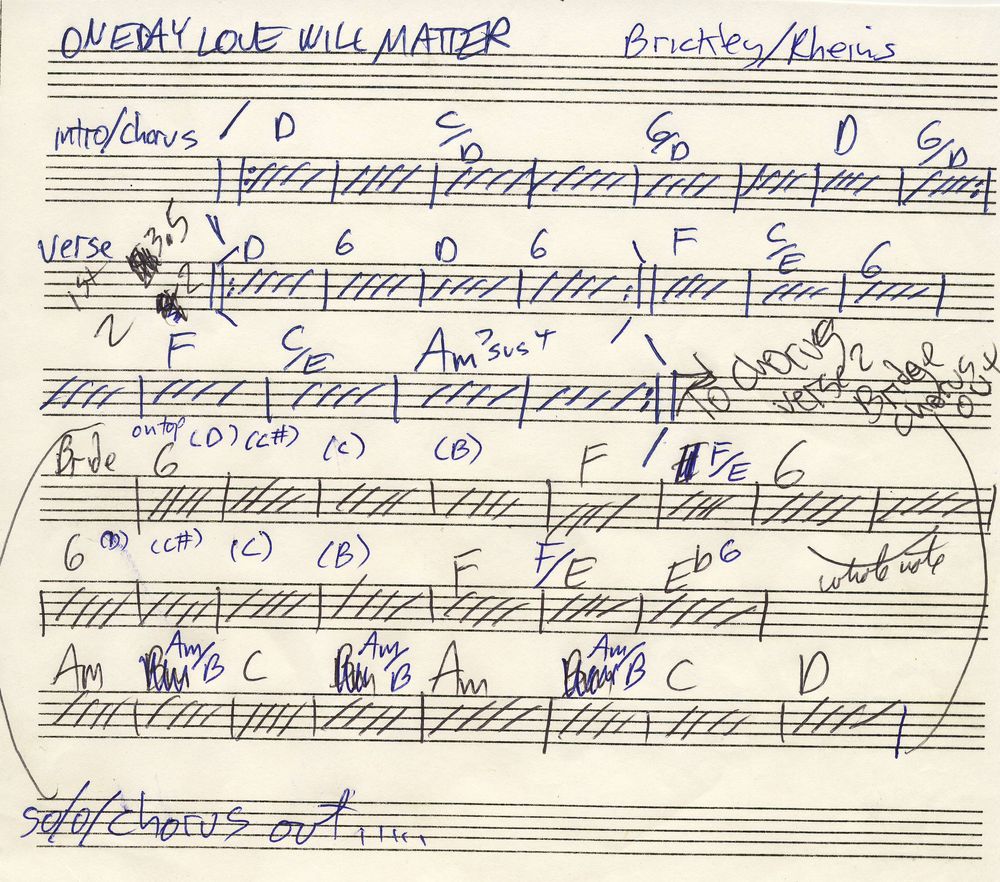 ONE DAY LOVE WILL MATTER Brickley/Rheins
intro/chorus / D C/D G/D D G/D
verse 1st 3.5 D G D G F C/E G
2 2
F C/E Am7sus4 To chorus verse 2 Bridge chorus out
Bride on top
G (D) (C#) (C) (B) F F/E G
whole note
G (D) (C#) (C) (B) F F/E Eb6
Am Am/B C Am/B Am Am/B C D
solo/chorus out.....